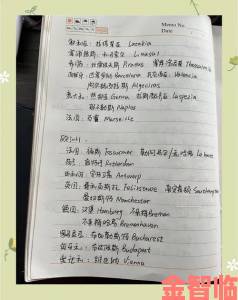 Memo No.
Date
叙利亚：拉塔基亚 Latakia
塞浦路斯：利马索尔 Limassol
希腊：比雷埃夫斯 Piraeus
西班牙：巴塞罗那 Barcelona 瓦伦西亚 Valencia
Algeciras
意大利：热那亚 Genoa 拉斯佩齐亚 Laspezia
那不勒斯 Naples
法国：马赛 Marseille
法国：福斯 Le havre
荷兰：鹿特丹 Rotterdam
比利时：安特卫普 Antwerp
英国：费利克斯托 Felixstowe 南安普顿 Southampton
曼彻斯特 Manchester
德国：汉堡 Hamburg 不来梅 Bremen
不来梅哈芬 Bremenhaven
罗马尼亚：布加勒斯特 Bucharest
匈牙利：布达佩斯 Budapest
奥地利：维也纳 Vienna
金智临